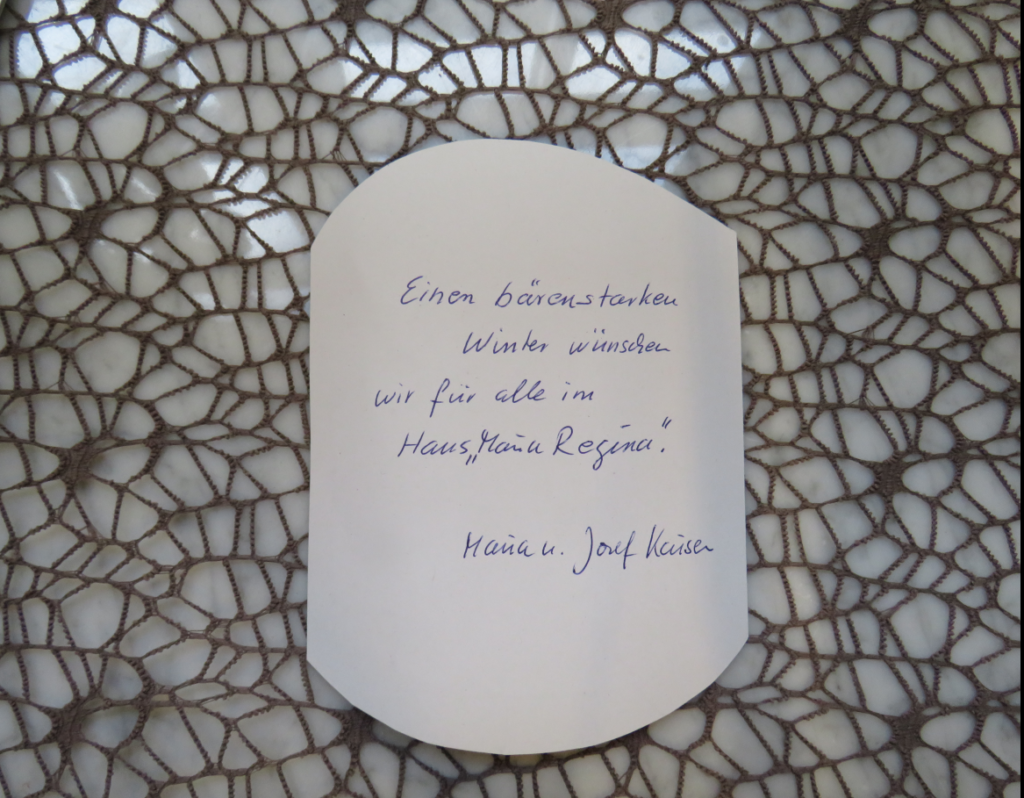 Einen bärenstarken
Winter wünschen
wir für alle im
Haus „Maria Regina".
Maria u. Josef Kaiser